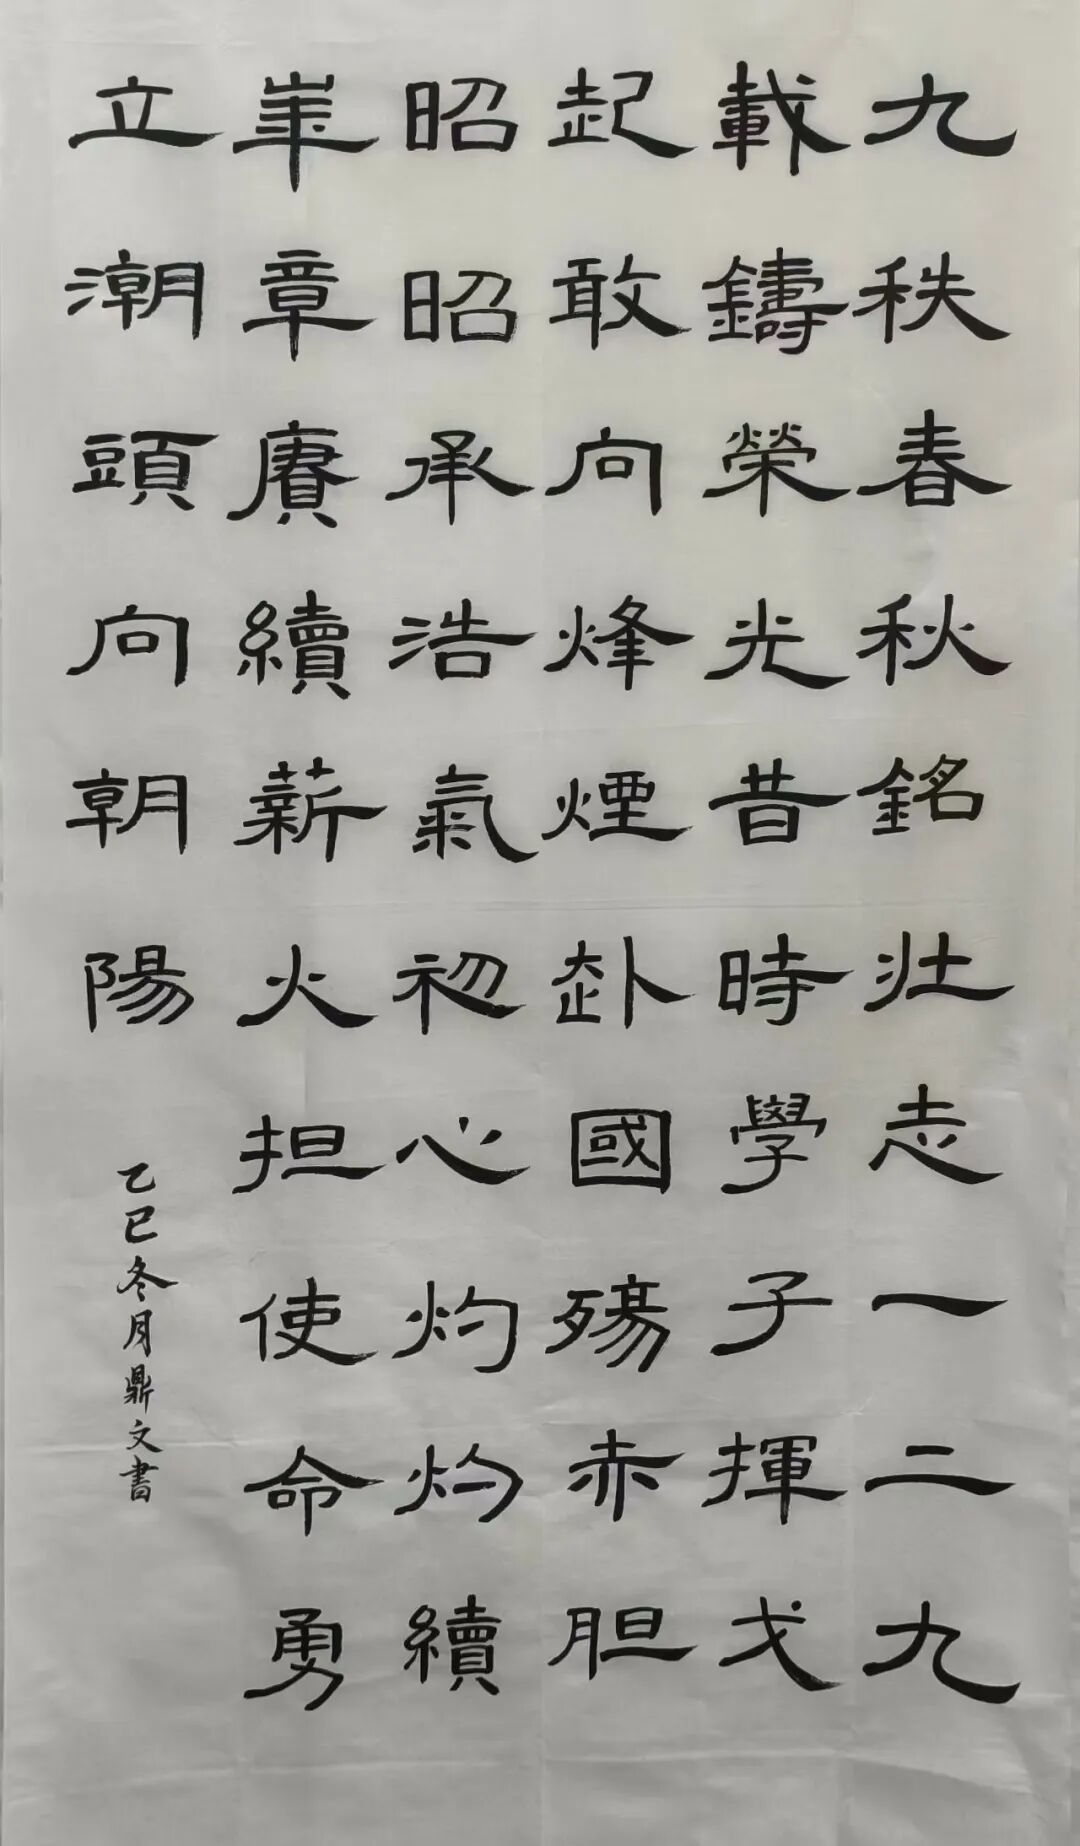 九秩春秋銘壯志一二九
載鑄榮光昔時學子揮戈
起敢向烽煙赴國殤赤胆
昭昭承浩氣初心灼灼續
華章賡續薪火担使命勇
立潮頭向朝陽
乙巳冬月鼎文書